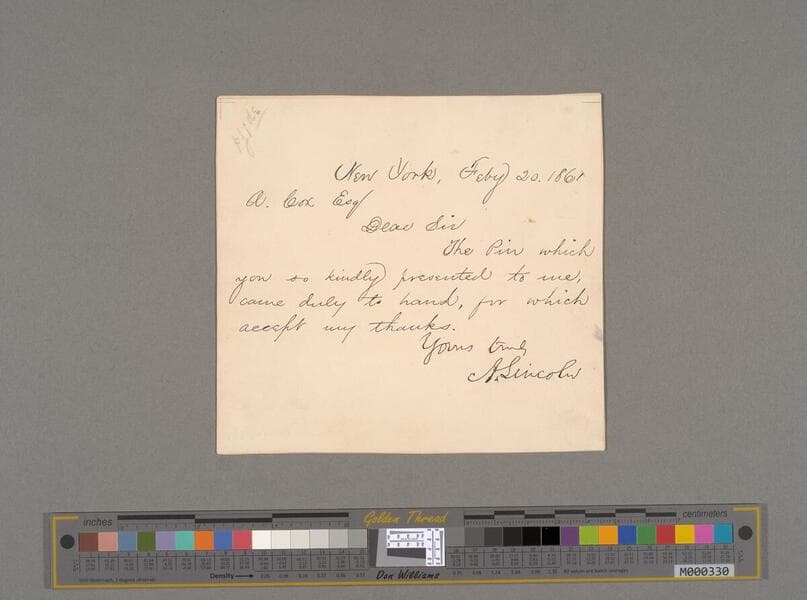 New York, Feby 20. 1861
A. Cox Esq
Dear Sir
The Pin which
you so kindly presented to me,
came duly to hand, for which
accept my thanks.
Yours truly
A. Lincoln
inches
centimeters
Golden Thread
Density
Don Williams
M000330